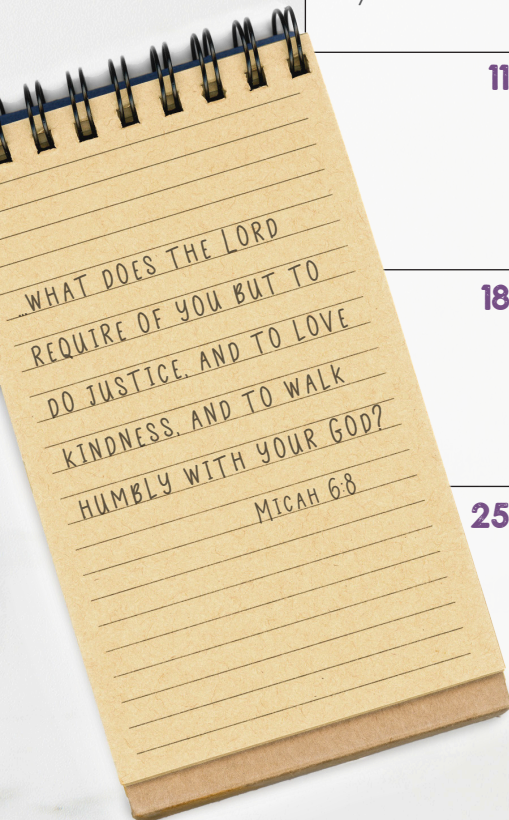 11
18
25
...WHAT DOES THE LORD
REQUIRE OF YOU BUT TO
DO JUSTICE, AND TO LOVE
KINDNESS, AND TO WALK
HUMBLY WITH YOUR GOD?
MICAH 6:8